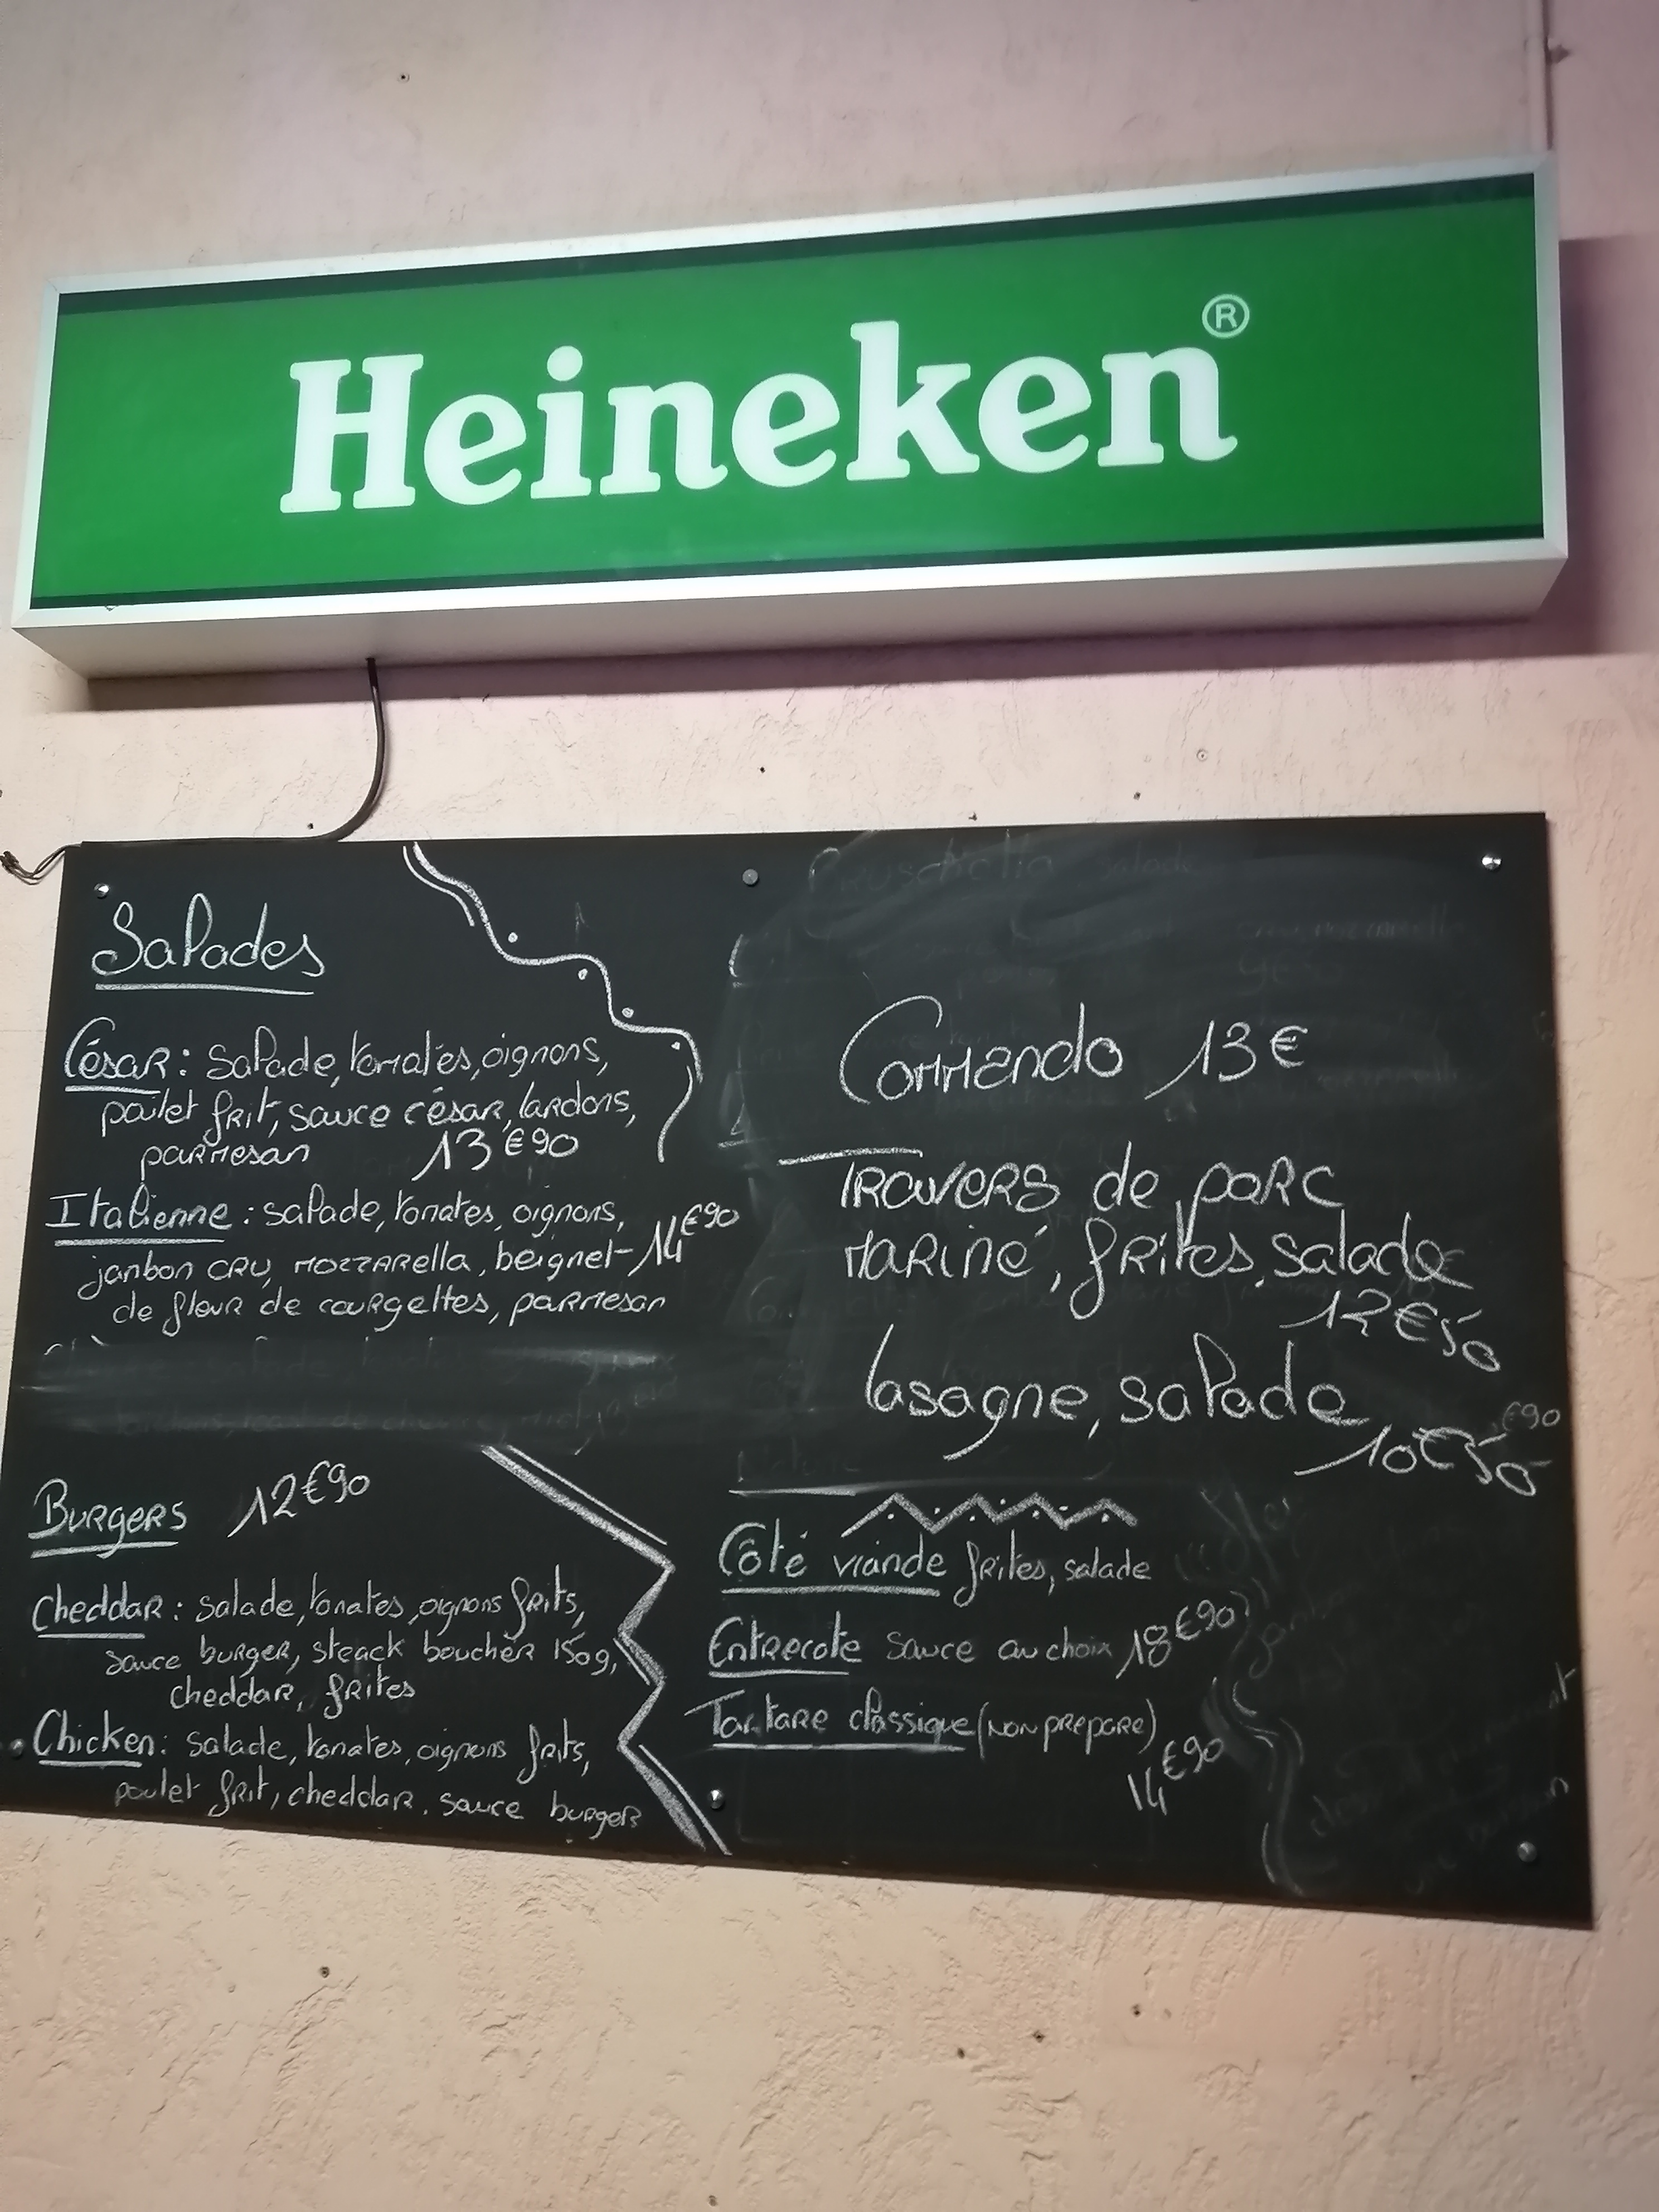 Heineken®
Salades
César : salade, tomates, oignons,
poulet frit, sauce césar, lardons,
parmesan 13€90
Italienne : salade, tomates, oignons,
jambon cru, mozzarella, beignet 14€90
de fleur de courgettes, parmesan
Burgers 12€90
Cheddar : salade, tomates, oignons frits,
sauce burger, steack boucher 150g,
cheddar, frites
Chicken : salade, tomates, oignons frits,
poulet frit, cheddar, sauce burger
Bruschetta salade
Commando 13€
Travers de porc
mariné, frites, salade
12€50
lasagne, salade
10€50
€90
Côté viande frites, salade
Entrecote sauce au choix 18€90
Tartare classique (non prepare)
14€90